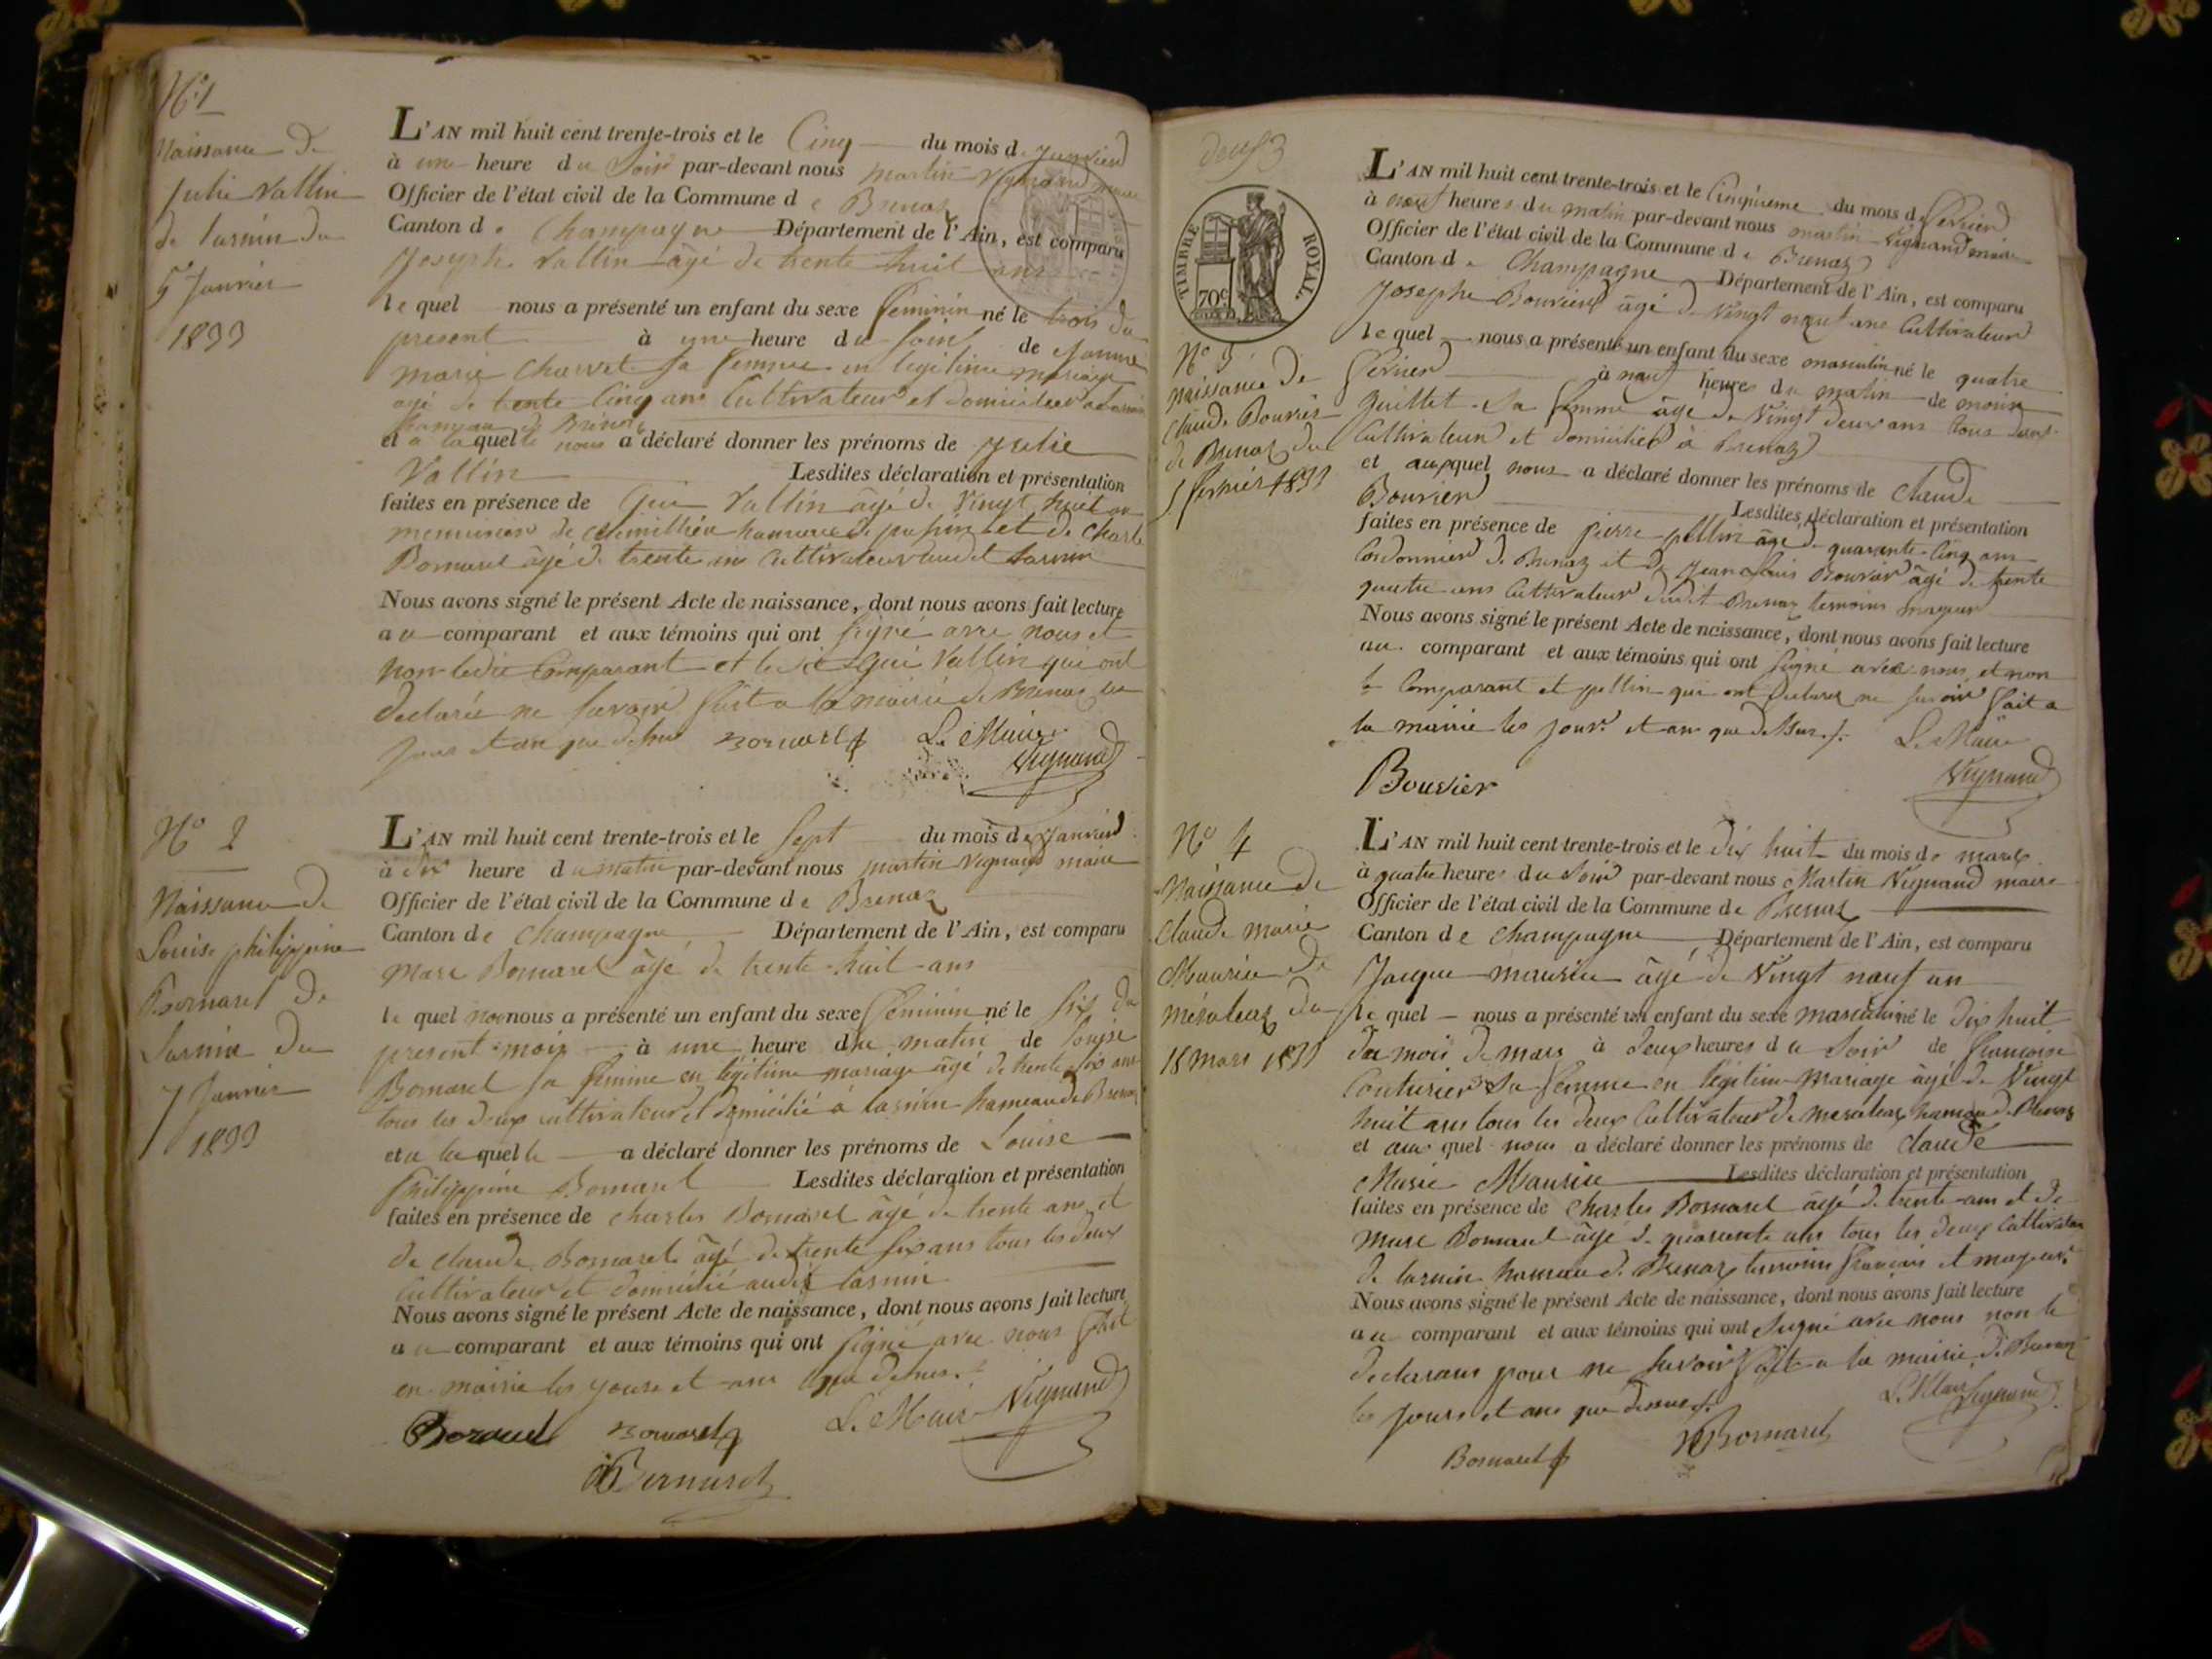 N° 1
Naissance de
Julie Vallin
de Larnin du
5 Janvier
1833
L'AN mil huit cent trente-trois et le Cinq du mois de Janvier
à une heure du Soir par-devant nous Martin Vignand maire
Officier de l'état civil de la Commune de Brenaz
Canton de Champagne Département de l'Ain, est comparu
Joseph Vallin âgé de trente huit ans
lequel nous a présenté un enfant du sexe feminin né le trois du
present à une heure du Soir de Jeanne
marie Charvet Sa femme en legitime mariage
agé de trente Cinq ans Cultivateur et domicilier a Larnin
hameau de Brenaz
et a laquelle nous a déclaré donner les prénoms de Julie
Vallin Lesdites déclaration et présentation
faites en présence de Gui Vallin âgé de Vingt huit an
de et de Charle
Bornarel âgé de trente an Cultivateur dudit Larnin
Nous avons signé le présent Acte de naissance, dont nous avons fait lecture
au comparant et aux témoins qui ont Signé avec nous et
non Comparant et Gui Vallin qui ont
declaré ne Savoir fait a la mairie de Brenaz les
jour et an que dessus Bornarel Le Maire
Vignand
N° 2
Naissance de
Louise philippine
Bornarel de
Larnin du
7 Janvier
1833
L'AN mil huit cent trente-trois et le Sept du mois de Janvier
à dix heure du matin par-devant nous martin Vignand maire
Officier de l'état civil de la Commune de Brenaz
Canton de Champagne Département de l'Ain, est comparu
Marc Bornarel âgé de trente-huit ans
lequel nous a présenté un enfant du sexe feminin né le Six du
present mois à une heure du matin de Louise
Bornarel Sa femme en légitime mariage âgé de trente six ans
tous les deux cultivateur et domicilié à Larnin hameau de Brenaz
et a laquelle a déclaré donner les prénoms de Louise
philippine Bornarel Lesdites déclaration et présentation
faites en présence de Charles Bornarel âgé de trente ans et
de Claude Bornarel âgé de trente six ans tous les deux
Cultivateur et domicilié audit Larnin
Nous avons signé le présent Acte de naissance, dont nous avons fait lecture
au comparant et aux témoins qui ont Signé avec nous fait
en mairie les jours et an que dessus.
Bornarel Bornarel Le Maire Vignand
Bornarel
deux
TIMBRE ROYAL.
70c
N° 3
Naissance de
Claude Bouvier
de Brenaz du
5 fevrier 1833
L'AN mil huit cent trente-trois et le Cinquieme du mois de Fevrier
à neuf heures du matin par-devant nous martin Vignand maire
Officier de l'état civil de la Commune de Brenaz
Canton de Champagne Département de l'Ain, est comparu
Josephe Bouvier âgé de Vingt neuf ans Cultivateur
lequel nous a présenté un enfant du sexe masculin né le quatre
fevrier à neuf heures du matin de
Juillet Sa femme âgé de Vingt deux ans tous deux
Cultivateur et domicilié à Brenaz
et auxquel nous a déclaré donner les prénoms de Claude
Bouvier Lesdites déclaration et présentation
faites en présence de pierre âgé de quarante-Cinq ans
Cordonnier de Brenaz et de Jean Bouvier âgé de trente
quatre ans Cultivateur dudit Brenaz temoins majeur
Nous avons signé le présent Acte de naissance, dont nous avons fait lecture
au comparant et aux témoins qui ont Signé avec nous et non
le Comparant et qui ont declarez ne Savoir fait a
la mairie les jour et an que dessus.
Le Maire
Bouvier Vignand
N° 4
Naissance de
Claude marie
Maurice de
du
18 mars 1833
L'AN mil huit cent trente-trois et le dix huit du mois de mars
à quatre heures du Soir par-devant nous Martin Vignand maire
Officier de l'état civil de la Commune de Brenaz
Canton de Champagne Département de l'Ain, est comparu
Jacque maurice âgé de Vingt neuf an
lequel nous a présenté un enfant du sexe masculin né le dix huit
du mois de mars à deux heures du Soir de françoise
Couturier Sa femme en légitime mariage âgé de Vingt
huit ans tous les deux Cultivateur de hameau de Brenaz
et aux quel nous a déclaré donner les prénoms de Claude
Marie Maurice Lesdites déclaration et présentation
faites en présence de Charles Bornarel âgé de trente ans et de
Marc Bornarel âgé de quarante ans tous les deux Cultivateur
de Larnin hameau de Brenaz temoins français et majeur
Nous avons signé le présent Acte de naissance, dont nous avons fait lecture
au comparant et aux témoins qui ont Signé avec nous non le
declarans pour ne Savoir fait a la mairie de Brenaz
les jours et ans que dessus. Le Maire Vignand
Bornarel Bornarel